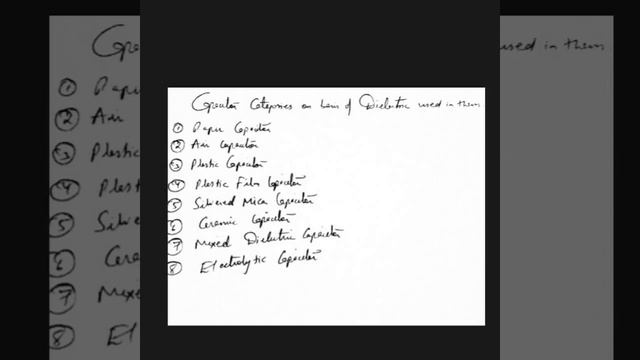 Capacitor Categories on basis of Dielectric used in them
① Paper Capacitor
② Air Capacitor
③ Plastic Capacitor
④ Plastic Film Capacitor
⑤ Silvered Mica Capacitor
⑥ Ceramic Capacitor
⑦ Mixed Dielectric Capacitor
⑧ Electrolytic Capacitor